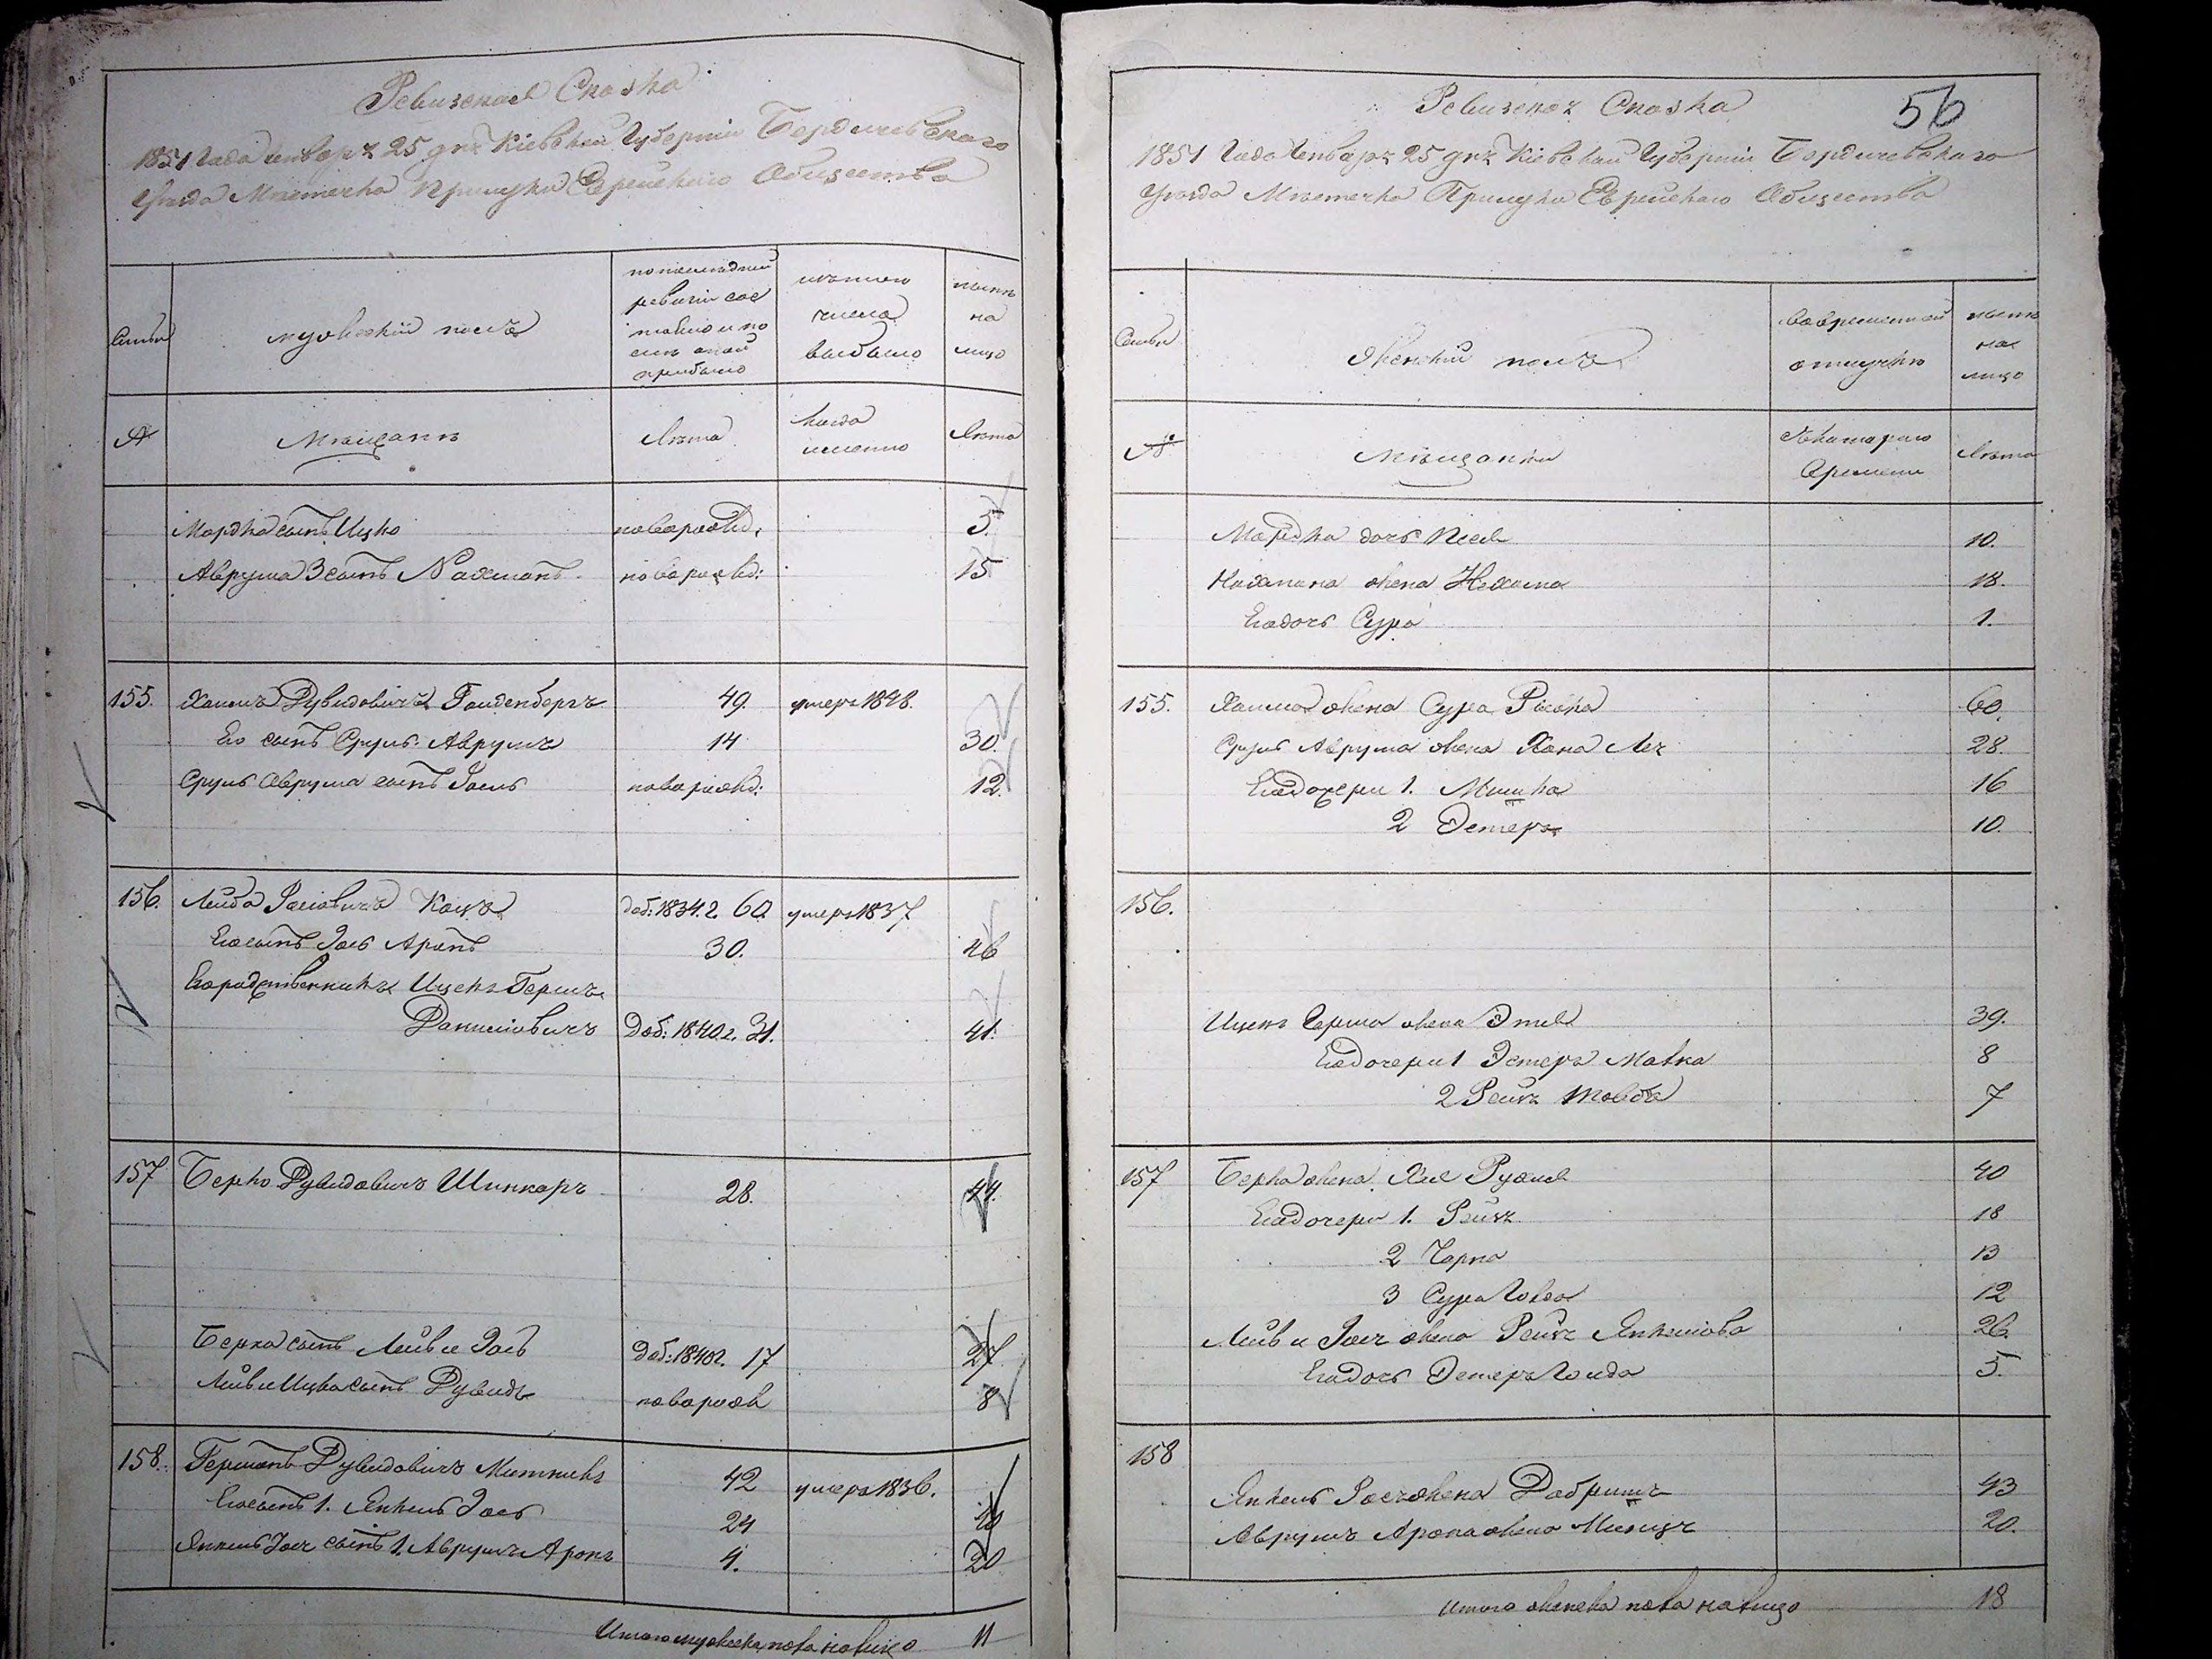 Ревизская Сказка
1851 Года Генваря 25 дня Кіевской Губерніи Бердичевского
Уезда Местечка Прилуки Еврейского Общества
Семьи
мужеский полъ
по последней
ревизіи сос
тояло и по
сле оной
прибыло
изъ того
числа
выбыло
ныне
на
лицо
№
Мещане
Лета
когда
именно
Лета
Мордка сынъ Ицко
новорожд:
5
Аврума 3 сынъ Нахманъ
новорожд:
15
155.
Хаимъ Дувидовичъ Гольденбергъ
49
умеръ 1848.
Его сынъ Сруль Аврумъ
14
30.
Сруль Аврума сынъ Іось
новорожд:
12.
156.
Лейба Іосіовичъ Кацъ
доб: 1834 г. 60
умеръ 1837
Его сынъ Іось Аронъ
30.
46
Его родственникъ Ицекъ Гершъ
Даниловичъ
Доб: 1840 г. 31.
41.
157
Берко Дувидовичъ Шинкаръ
28.
44.
Берка сынъ Лейви Іось
доб: 1840 г. 17
27.
Сынъ Дувидъ
новорож
8
158.
Гершонъ Дувидовичъ
42
умеръ 1836.
Его сынъ 1. Янкель Іось
24
40
Янкель Іося сынъ 1. Аврумъ Аронъ
4.
20
Итого мужеска пола на лицо
11
Ревизская Сказка
56
1851 Года Генваря 25 дня Кіевской Губерніи Бердичевского
Уезда Местечка Прилуки Еврейского Общества
Семьи
Женский полъ
во временной
отлучке
ныне
на
лицо
№
Мещанки
Съ котораго
времени
Лета
Мордка дочь
10.
Нахмана жена Нехама
18.
Его дочь Сура
1.
155.
Хаима жена Сура Рыска
60.
Сруль Аврума жена Хана Лея
28.
Его дочери 1.
16
2 Эстеръ
10.
156.
Ицекъ Герша жена Этля
39.
Его дочери 1 Эстеръ Малка
8
2 Рейзя Товба
7
157
Берка жена Хая Рухля
40
Его дочери 1. Рейзя
18
2 Черна
13
3 Сура Голда
12
Лейви Іося жена Рейзя Янкеліова
26.
Его дочь Эстеръ Голда
5.
158
Янкель Іося жена Добришъ
43
Аврумъ Арона жена
20.
Итого женска пола на лицо
18